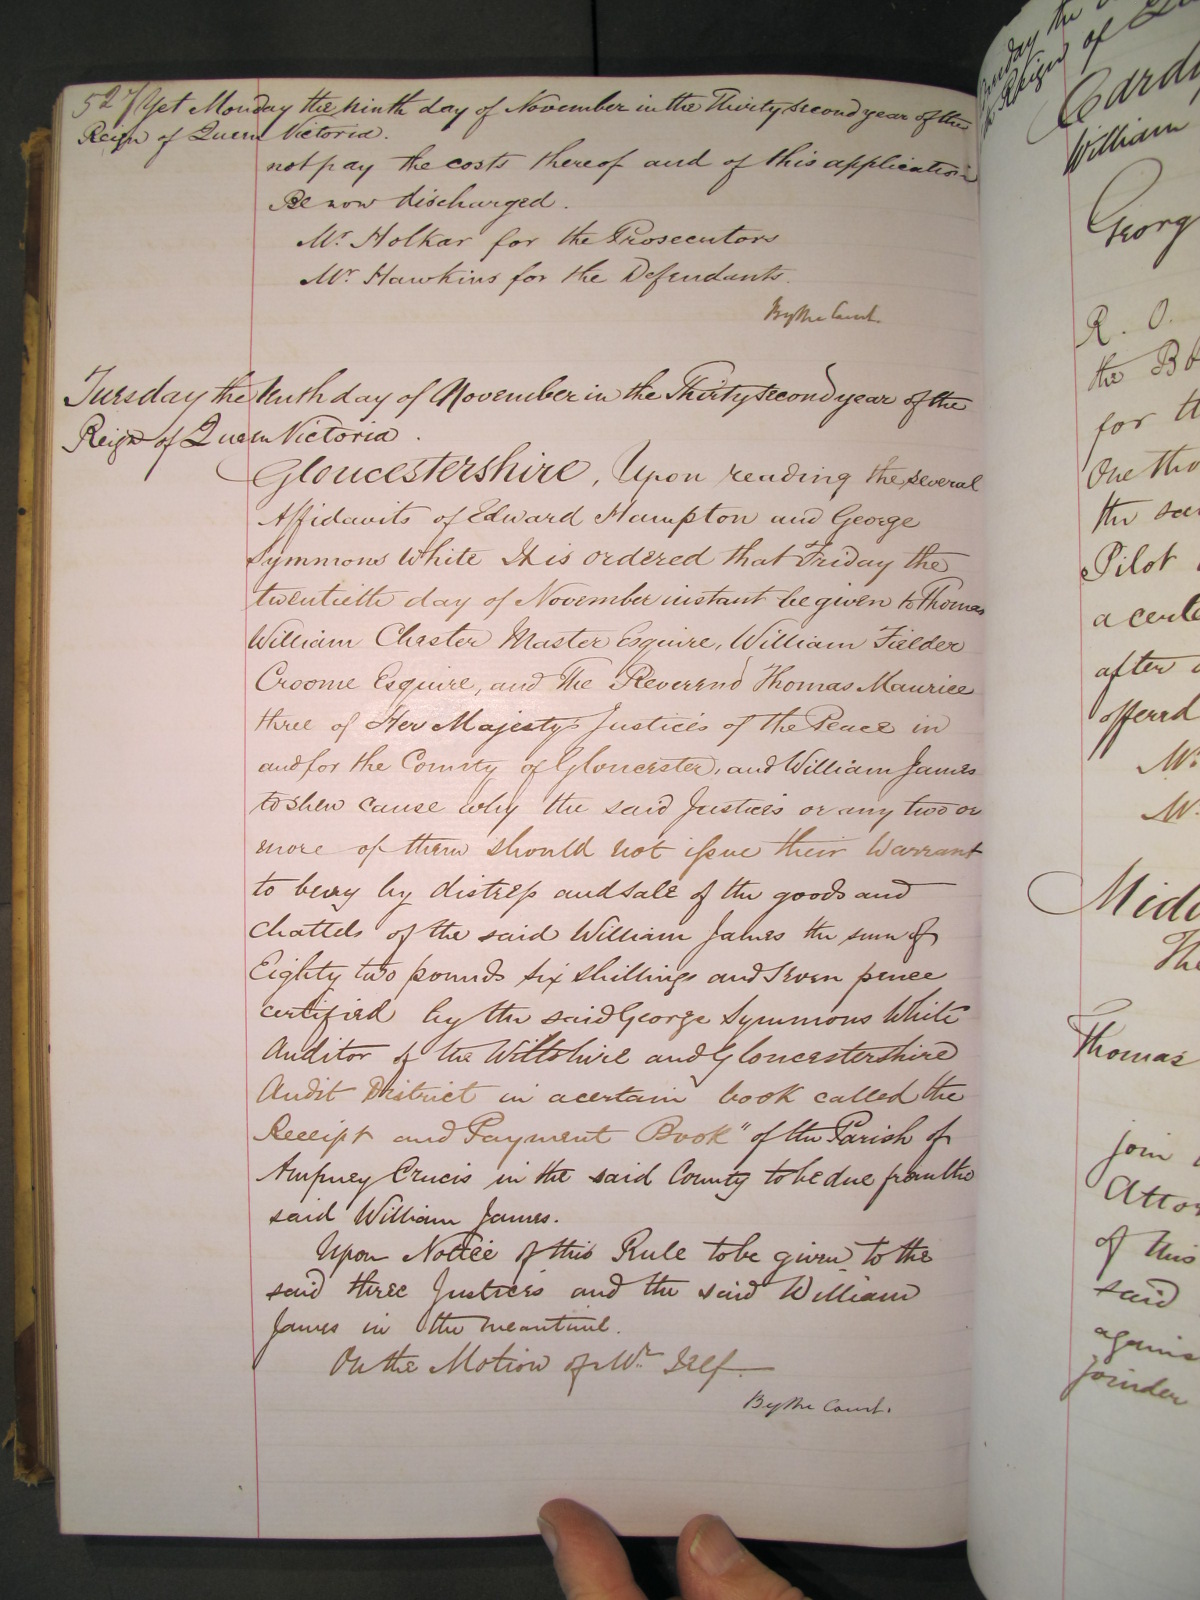 527 Yet Monday the ninth day of November in the Thirty second year of the
Reign of Queen Victoria.
not pay the costs thereof and of this application
Be now discharged.
Mr. Holkar for the Prosecutors
Mr. Hawkins for the Defendants.
By the Court.
Tuesday the tenth day of November in the Thirty second year of the
Reign of Queen Victoria.
Gloucestershire, Upon reading the several
Affidavits of Edward Hampton and George
Symmons White It is ordered that Friday the
twentieth day of November instant be given to Thomas
William Chester Master Esquire, William Fielder
Croome Esquire, and The Reverend Thomas Maurice
three of Her Majesty's Justices of the Peace in
and for the County of Gloucester, and William James
to shew cause why the said Justices or any two or
more of them should not issue their Warrant
to levy by distress and sale of the goods and
chattels of the said William James the sum of
Eighty two pounds six shillings and seven pence
certified by the said George Symmons White
Auditor of the Wiltshire and Gloucestershire
Audit District in a certain book called the
Receipt and Payment Book" of the Parish of
Ampney Crucis in the said County to be due from the
said William James.
Upon Notice of this Rule to be given to the
said three Justices and the said William
James in the meantime.
On the Motion of Mr. Self.
By the Court.
Reign of
William
Georg
R. O.
the
for th
One tho
the
Pilot
a certa
after
offered
Mr.
Mr.
Midd
The
Thomas
join
Attor
of this
said
agains
joinder